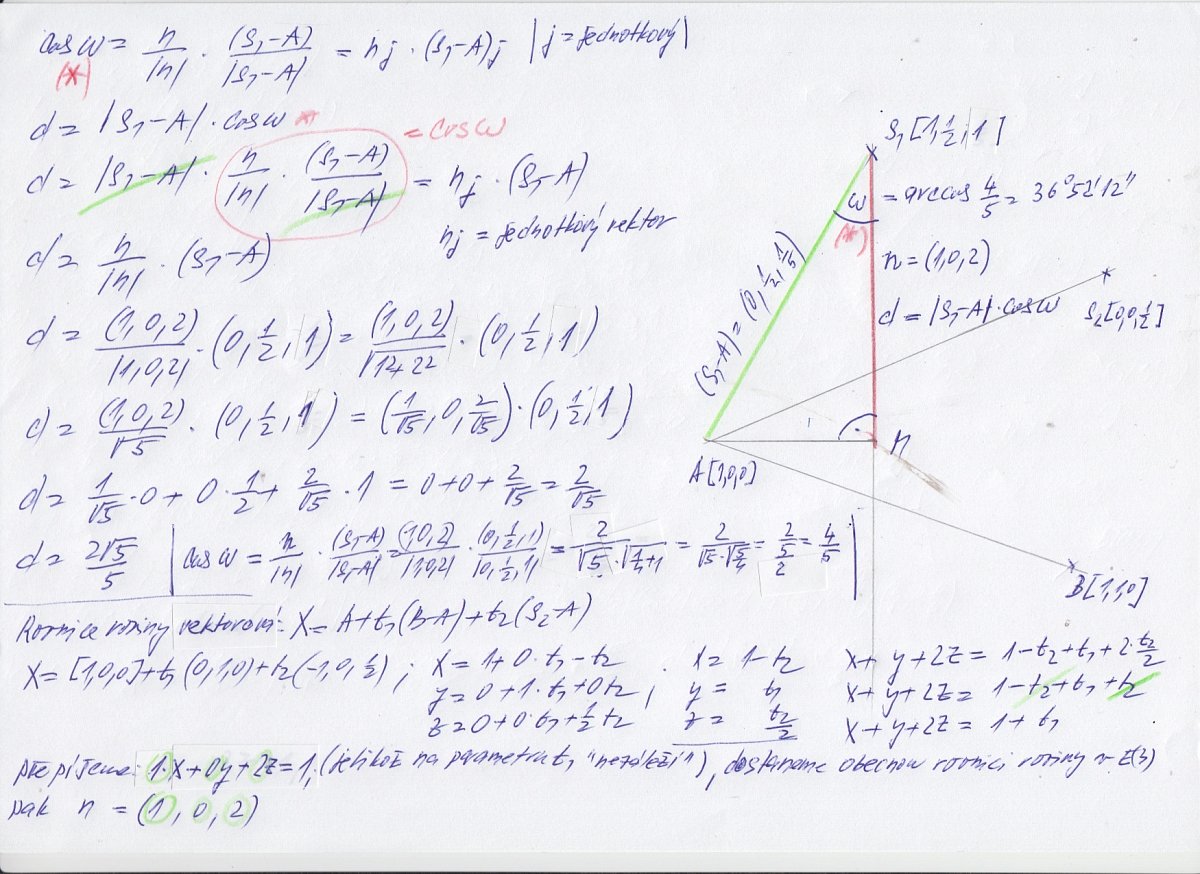 cos ω = n/|n| · (S₁-A)/|S₁-A| = nj · (S₁-A)j | j = jednotkový |
(*)
d = |S₁-A| · cos ω *
= cos ω
d = |S₁-A| · n/|n| · (S₁-A)/|S₁-A| = nj · (S₁-A)
nj = jednotkový vektor
d = n/|n| · (S₁-A)
d = (1,0,2)/|1,0,2| · (0,1/2,1) = (1,0,2)/√1²+2² · (0,1/2,1)
d = (1,0,2)/√5 · (0,1/2,1) = (1/√5,0,2/√5) · (0,1/2,1)
d = 1/√5 · 0 + 0 · 1/2 + 2/√5 · 1 = 0+0+2/√5 = 2/√5
d = 2√5/5 | cos ω = n/|n| · (S₁-A)/|S₁-A| = (1,0,2)/|1,0,2| · (0,1/2,1)/|0,1/2,1| = 2/√5·√1/4+1 = 2/√5·√5/4 = 2/5/2 = 4/5 |
S₁[1,1/2,1]
ω = arccos 4/5 = 36°52'12"
(*)
n = (1,0,2)
d = |S₁-A| · cos ω
S₂[0,0,1/2]
(S₁-A) = (0,1/2,1)
A[1,0,0]
M
B[1,1,0]
Rovnice roviny vektorová: X = A+t₁(B-A)+t₂(S₂-A)
X = [1,0,0]+t₁(0,1,0)+t₂(-1,0,1/2) ; x = 1+0·t₁-t₂ ; x = 1-t₂ x+y+2z = 1-t₂+t₁+2·t₂/2
y = 0+1·t₁+0t₂ ; y = t₁ x+y+2z = 1-t₂+t₁+t₂
z = 0+0·t₁+1/2t₂ z = t₂/2 x+y+2z = 1+t₁
přepíšeme: 1·x+0y+2z=1, (jelikož na parametru t₁ "nezáleží"), dostaneme obecnou rovnici roviny v E(3)
pak n = (1,0,2)